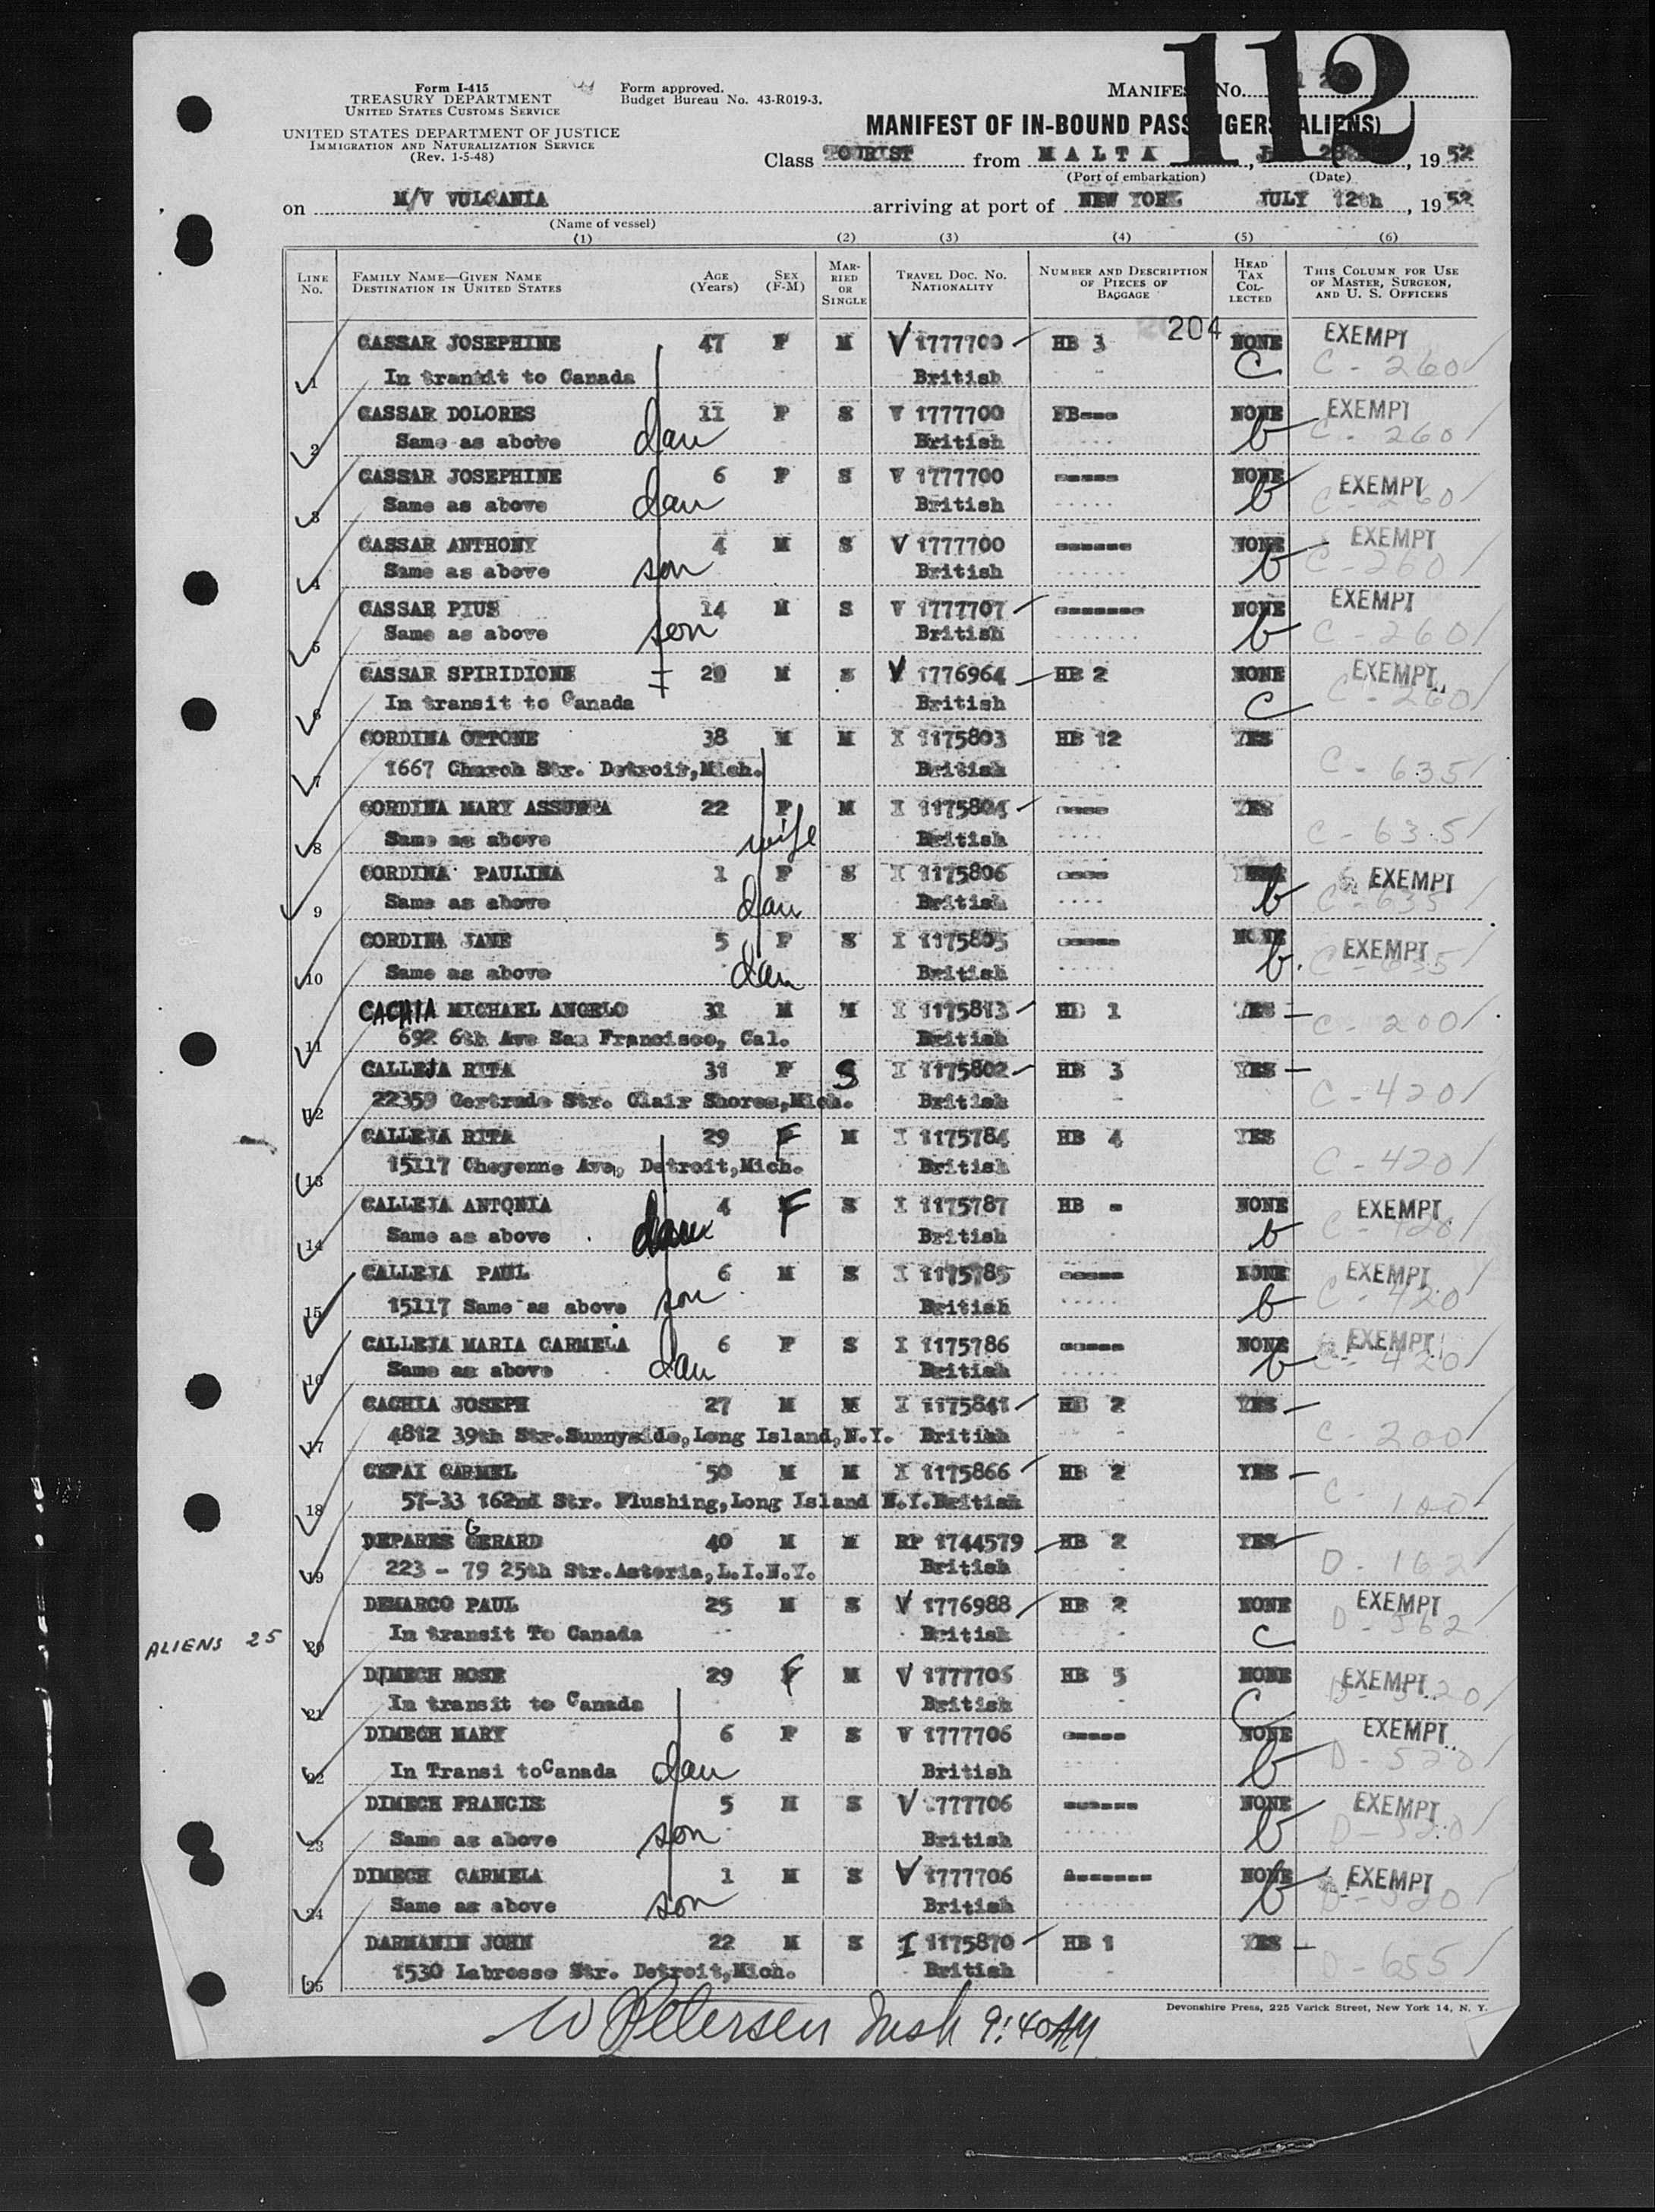 112
Form I-415
TREASURY DEPARTMENT
UNITED STATES CUSTOMS SERVICE
UNITED STATES DEPARTMENT OF JUSTICE
IMMIGRATION AND NATURALIZATION SERVICE
(Rev. 1-5-48)
Form approved.
Budget Bureau No. 43-R019-3.
MANIFEST No.
MANIFEST OF IN-BOUND PASSENGERS (ALIENS)
Class TOURIST from MALTA , 1952
(Port of embarkation) (Date)
on M/V VULCANIA arriving at port of NEW YORK JULY 12th, 1952
(Name of vessel)
(1) (2) (3) (4) (5) (6)
LINE No. FAMILY NAME—GIVEN NAME DESTINATION IN UNITED STATES AGE (Years) SEX (F-M) MARRIED OR SINGLE TRAVEL DOC. No. NATIONALITY NUMBER AND DESCRIPTION OF PIECES OF BAGGAGE HEAD TAX COLLECTED THIS COLUMN FOR USE OF MASTER, SURGEON, AND U. S. OFFICERS
204
CASSAR JOSEPHINE 47 F M V 1777700 HB 3 NONE EXEMPT
1 In transit to Canada British C C-260
CASSAR DOLORES 11 F S V 1777700 HB--- NONE EXEMPT
2 Same as above dau British b C-260
CASSAR JOSEPHINE 6 F S V 1777700 ----- NONE EXEMPT
3 Same as above dau British b C-260
CASSAR ANTHONY 4 M S V 1777700 ------ NONE EXEMPT
4 Same as above son British b C-260
CASSAR PIUS 14 M S V 1777707 ------- NONE EXEMPT
5 Same as above son British b C-260
CASSAR SPIRIDIONE 20 M S V 1776964 HB 2 NONE EXEMPT
6 In transit to Canada British C C-260
CORDINA OTTONE 38 M M I 1175803 HB 12 YES
7 1667 Church Str. Detroit,Mich. British C-635
CORDINA MARY ASSUNTA 22 F M I 1175804 ---- YES
8 Same as above wife British C-635
CORDINA PAULINA 1 F S I 1175806 ---- EXEMPT
9 Same as above dau British b C-635
CORDINA JANE 5 F S I 1175805 ----- NONE EXEMPT
10 Same as above dau British b. C-635
CACHIA MICHAEL ANGELO 31 M M I 1175813 HB 1 YES
11 692 6th Ave San Francisco, Cal. British C-200
CALLEJA RITA 31 F S I 1175802 HB 3 YES
12 22359 Gertrude Str. Clair Shores,Mich. British C-420
CALLEJA RITA 29 F M I 1175784 HB 4 YES
13 15117 Cheyenne Ave, Detroit,Mich. British C-420
CALLEJA ANTONIA 4 F S I 1175787 HB - NONE EXEMPT
14 Same as above British b C-420
CALLEJA PAUL 6 M S I 1175785 ----- NONE EXEMPT
15 15117 Same as above son British b C-420
CALLEJA MARIA CARMELA 6 F S I 1175786 ----- NONE EXEMPT
16 Same as above dau British b C-420
CACHIA JOSEPH 27 M M I 1175841 HB 2 YES
17 4812 39th Str.Sunnyside,Long Island,N.Y. British C-200
CEFAI CARMEL 50 M M I 1175866 HB 2 YES
18 57-33 162nd Str. Flushing,Long Island N.Y.British C-100
DEPARES GERARD 40 M M RP 1744579 HB 2 YES
19 223 - 79 25th Str.Astoria,L.I.N.Y. British D-162
DEMARCO PAUL 25 M S V 1776988 HB 2 NONE EXEMPT
20 In transit To Canada British C D-562
ALIENS 25
DIMECH ROSE 29 F M V 1777706 HB 5 NONE EXEMPT
21 In transit to Canada British C D-520
DIMECH MARY 6 F S V 1777706 ----- NONE EXEMPT
22 In Transi toCanada dau British b D-520
DIMECH FRANCIS 5 M S V 1777706 ------ NONE EXEMPT
23 Same as above son British b D-520
DIMECH CARMELA 1 M S V 1777706 ------- NONE EXEMPT
24 Same as above son British b D-520
DARMANIN JOHN 22 M S I 1175870 HB 1 YES
25 1530 Labrosse Str. Detroit,Mich. British D-655
Devonshire Press, 225 Varick Street, New York 14, N. Y.
W Petersen Insh 9:40AM